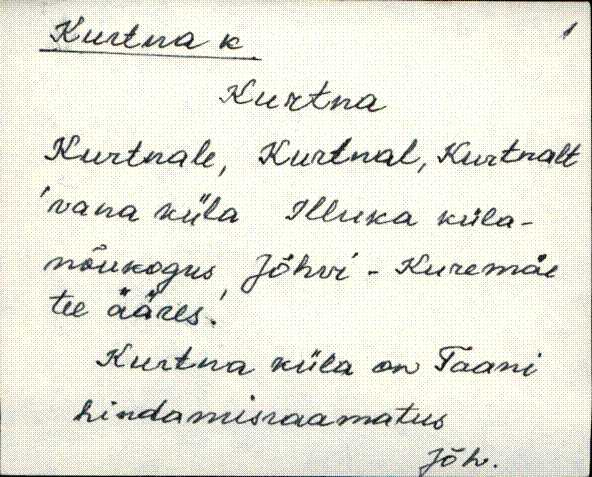 Kurtna k. 1
Kurtna
Kurtnale, Kurtnal, Kurtnalt
'vana küla Illuka küla-
nõukogus, Jõhvi - Kuremäe
tee ääres.'
Kurtna küla on Taani
hindamisraamatus
Jõh.